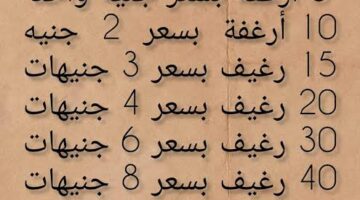 10 أرغفة بسعر 2 جنيه
15 رغيف بسعر 3 جنيهات
20 رغيف بسعر 4 جنيهات
30 رغيف بسعر 6 جنيهات
40 رغيف بسعر 8 جنيهات